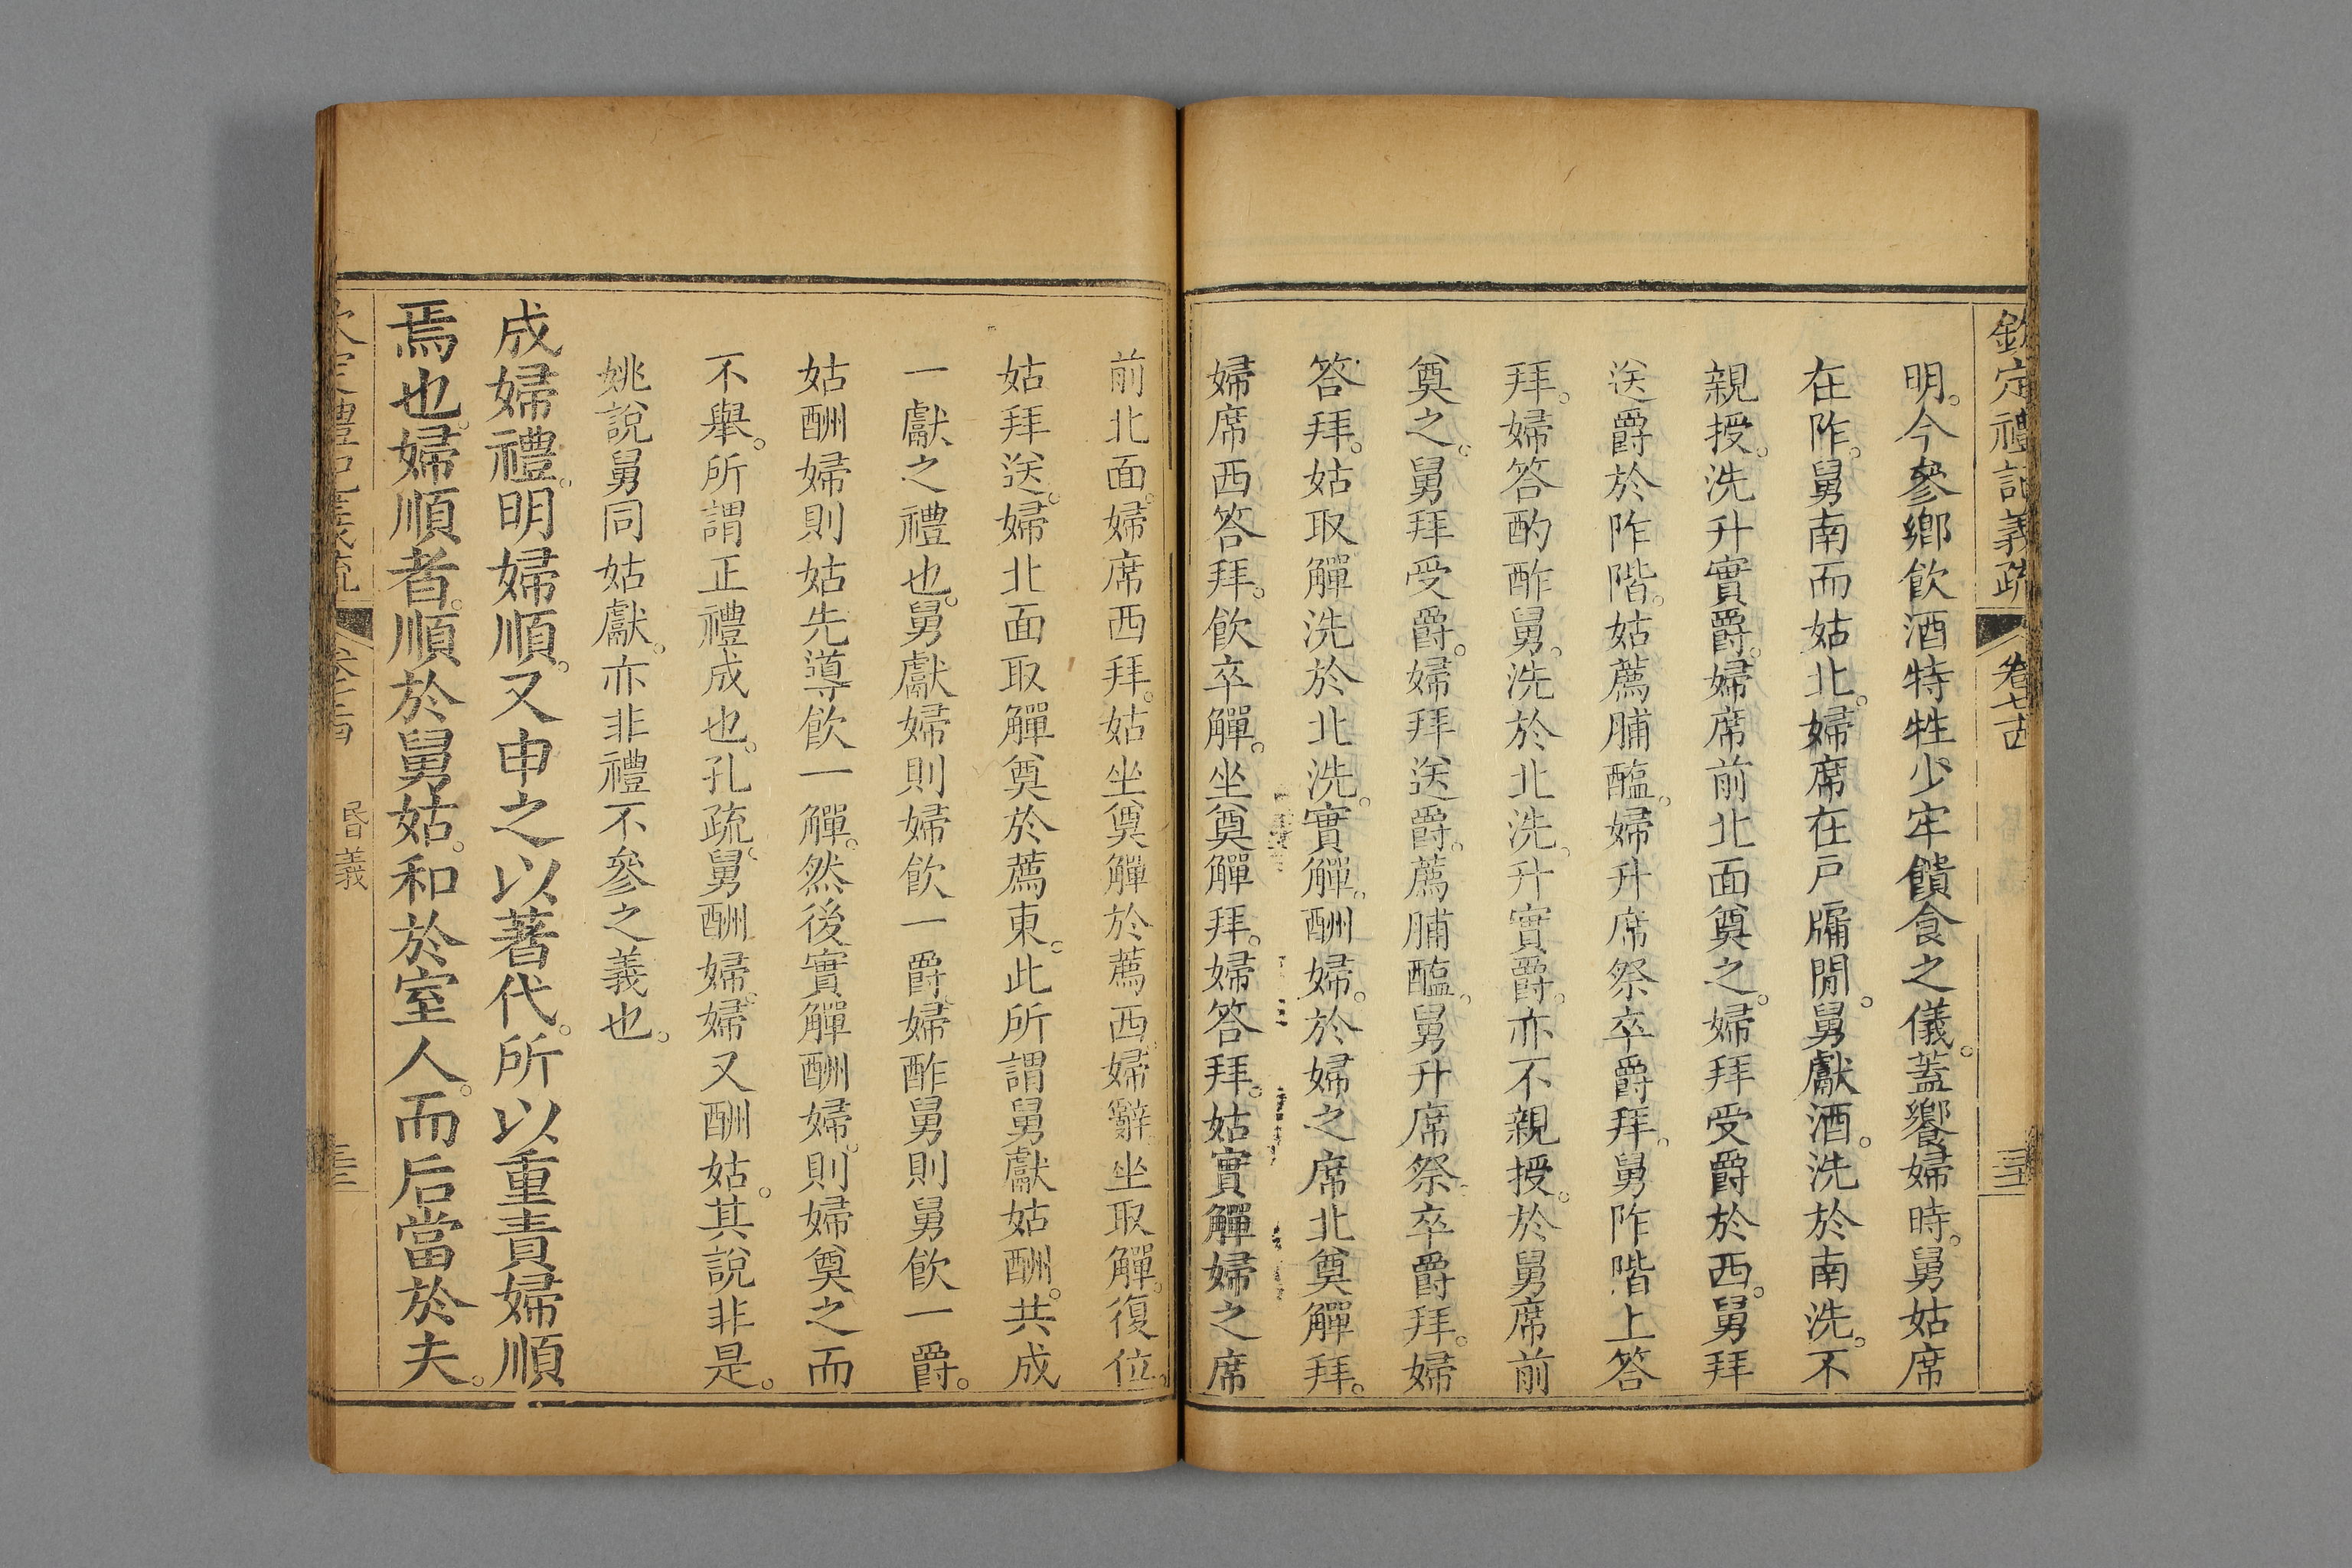 欽定禮記義疏 卷七十四
明。今參鄉飲酒特牲少牢饋食之儀。蓋饗婦時。舅姑席
在阼。舅南而姑北。婦席在戶牖閒。舅獻酒。洗於南洗。不
親授。洗升實爵。婦席前北面奠之。婦拜受爵於西。舅拜
送爵於阼階。姑薦脯醢。婦升席祭卒爵拜。舅阼階上答
拜。婦答酌酢舅。洗於北洗。升實爵。亦不親授。於舅席前
奠之。舅拜受爵。婦拜送爵。薦脯醢。舅升席祭卒爵拜。婦
答拜。姑取觶洗於北洗。實觶。酬婦。於婦之席北奠觶拜。
婦席西答拜。飲卒觶。坐奠觶拜。婦答拜。姑實觶婦之席
前北面。婦席西拜。姑坐奠觶於薦西。婦辭。坐取觶。復位。
姑拜送。婦北面取觶奠於薦東。此所謂舅獻姑酬。共成
一獻之禮也。舅獻婦則婦飲一爵。婦酢舅則舅飲一爵。
姑酬婦則姑先導飲一觶。然後實觶酬婦。則婦奠之而
不舉。所謂正禮成也。孔疏。舅酬婦。婦又酬姑。其說非是。
姚說舅同姑獻。亦非禮不參之義也。
成婦禮。明婦順。又申之以著代。所以重責婦順
焉也。婦順者。順於舅姑。和於室人。而后當於夫。
昏義